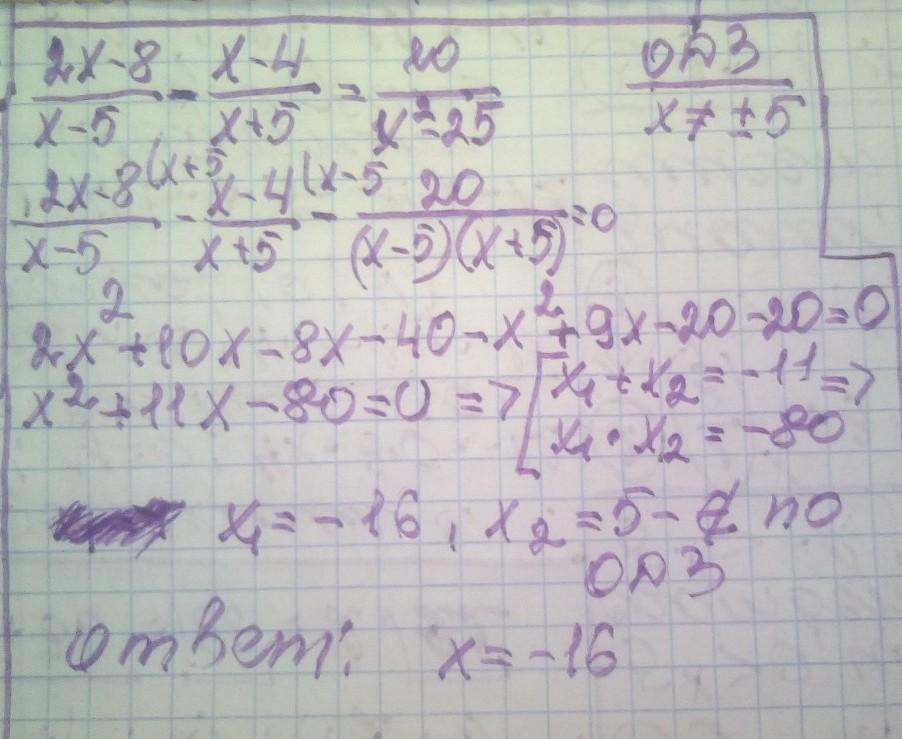 (2x-8)/(x-5) - (x-4)/(x+5) = 20/(x²-25)
ОДЗ
x ≠ ±5
2x-8(x+5/(x-5) - x-4(x-5/(x+5) - 20/((x-5)(x+5)) = 0
2x²+10x-8x-40-x²+9x-20-20=0
x²+11x-80=0 => [x₁+x₂=-11 =>
x₁·x₂=-80
x₁=-16, x₂=5-∉ по
ОДЗ
ответ: x=-16